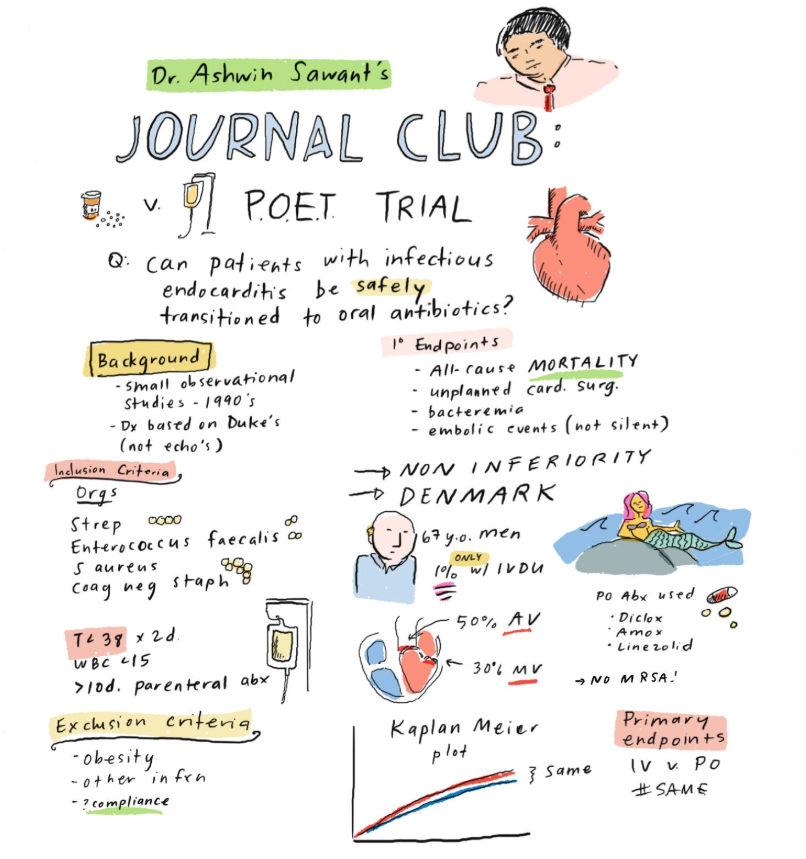 Dr. Ashwin Sawant's
JOURNAL CLUB:
v. P.O.E.T. TRIAL
Q: Can patients with infectious
endocarditis be safely
transitioned to oral antibiotics?
Background
- small observational
studies - 1990's
- Dx based on Duke's
(not echo's)
1° Endpoints
- All-cause MORTALITY
- unplanned card. surg.
- bacteremia
- embolic events (not silent)
→ NON INFERIORITY
→ DENMARK
Inclusion Criteria
Orgs
Strep
Enterococcus faecalis
S aureus
Coag neg staph
T < 38 x 2d.
WBC <15
>10d. parenteral abx
67 y.o. men
ONLY
1% w/ IVDU
50% AV
30% MV
PO Abx used
· Diclox
· Amox
· Linezolid
→ NO MRSA!
Exclusion Criteria
- obesity
- other infxn
- ?compliance
Kaplan Meier
plot
} Same
Primary
endpoints
IV v. PO
#SAME